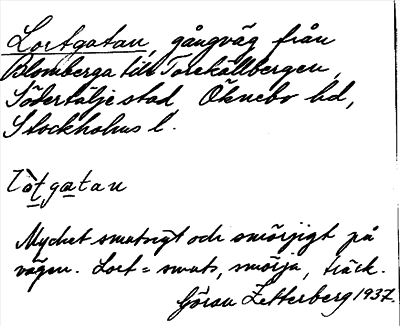 Lortgatan, gångväg från
Blomberga till Torekällbergen,
Södertälje stad, Öknebo hd,
Stockholms l.
Lo̊ṯga̱tan
Mycket smutsigt och smörjigt på
vägen. Lort = smuts, smörja, träck.
Göran Zetterberg 1937.